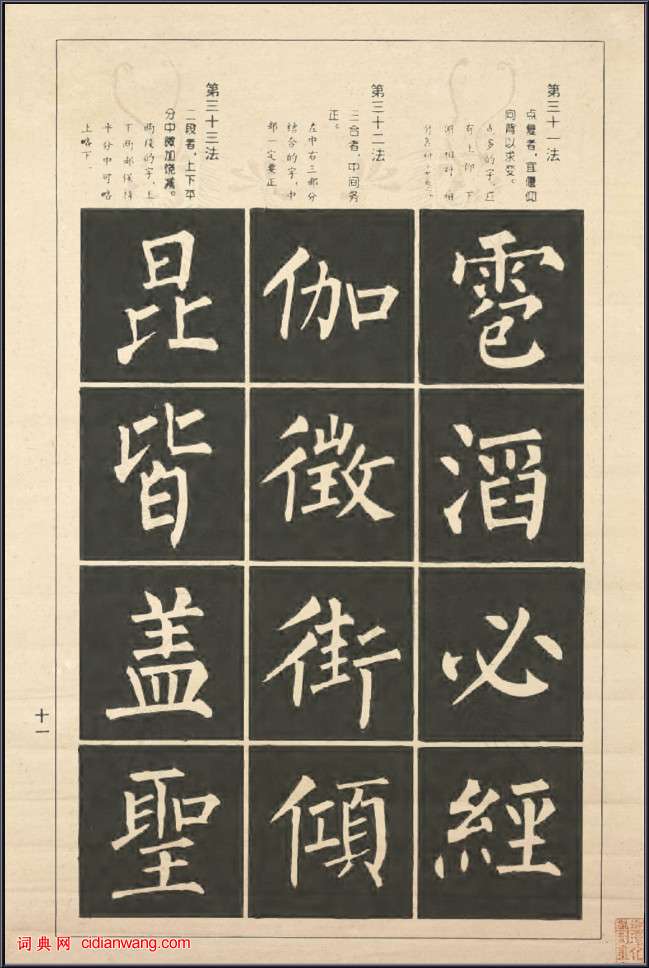 第三十一法
点复者，宜偃仰
向背以求变。
点多的字，
有上仰下
俯相对相
第三十二法
三合者，中间务
正。
左中右三部分
结合的字，中
部一定要正。
第三十三法
二段者，上下平
分中微加饶减。
两段的字，上
下两部保持
平分中可略
上略下.
雹滔必經
伽徵街傾
昆皆盖聖
十一
词典网 cidianwang.com